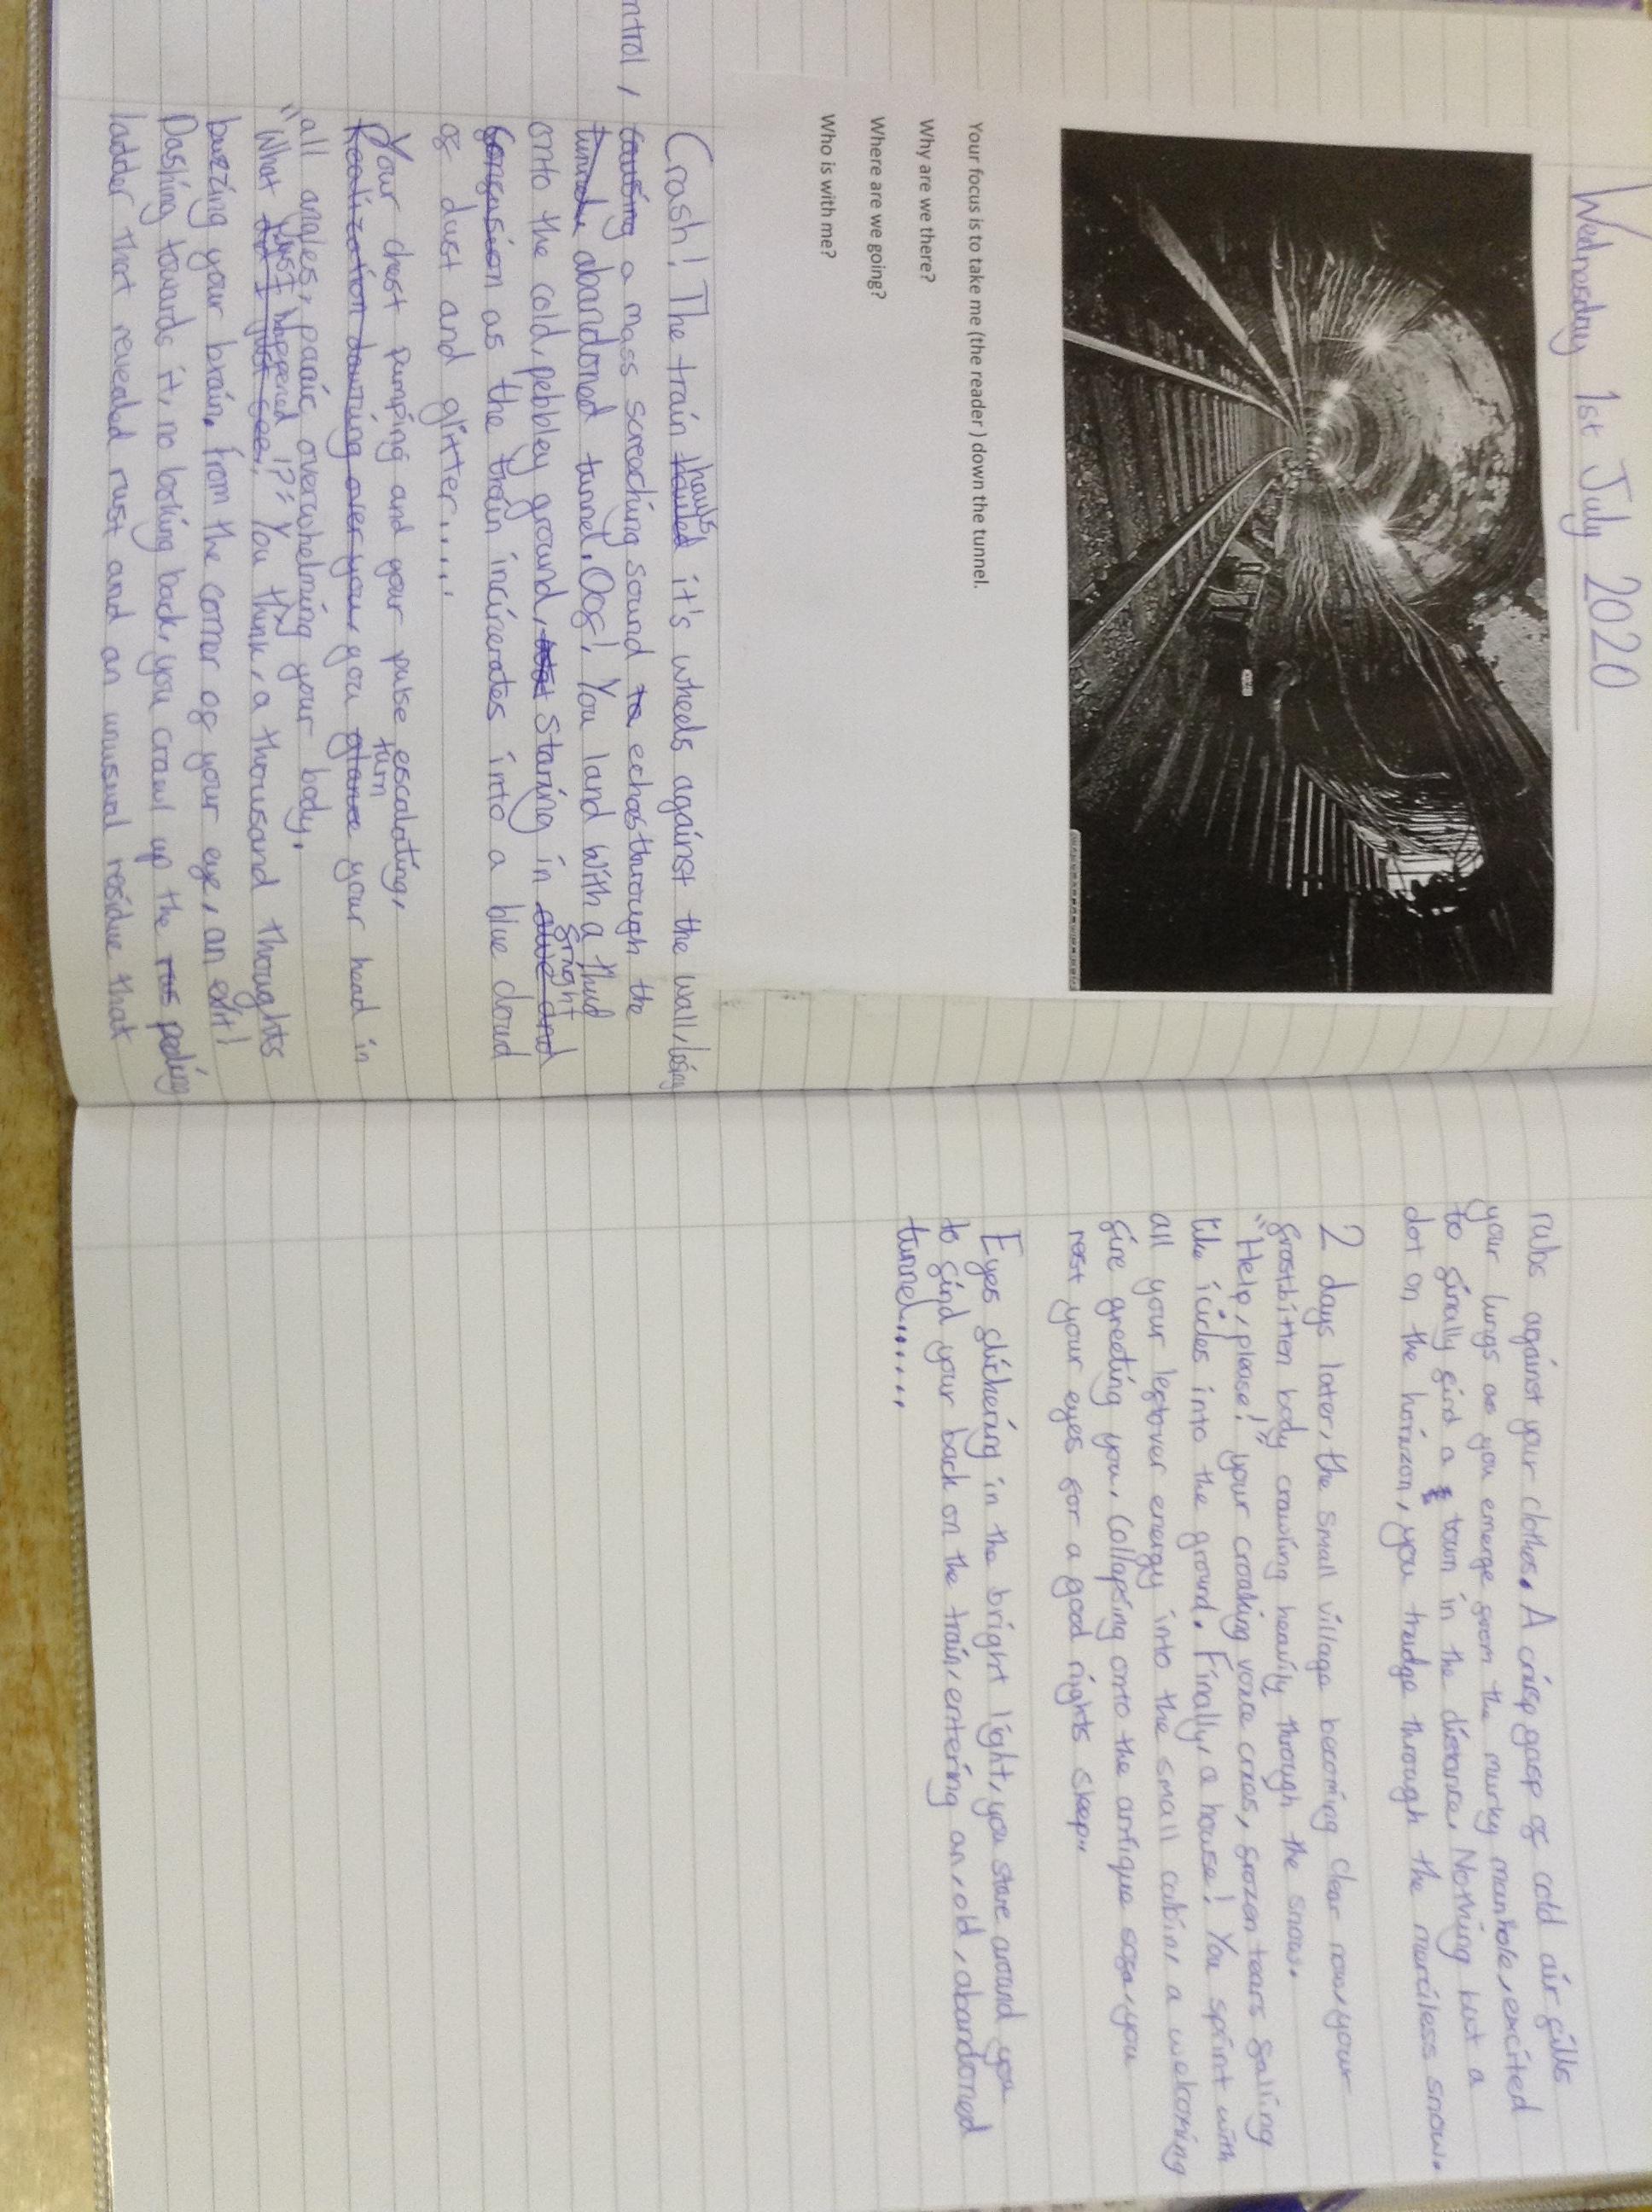 Wednesday 1st July 2020
Your focus is to take me (the reader ) down the tunnel.
Why are we there?
Where are we going?
Who is with me?
Crash! The train hauls it's wheels against the wall, losing
ntrol, a mass screaching sound echos through the
abandoned tunnel. Oof! You land with a thud
onto the cold, pebbley ground, Staring in fright
as the train incinerates into a blue cloud
of dust and glitter.....
Your chest pumping and your pulse escalating,
you turn your head in
all angles, panic overwhelming your body.
"What just happened !?" You think, a thousand thoughts
buzzing your brain. from the corner of your eye, an exit!
Dashing towards it, no looking back, you crawl up the peeling
ladder that revealed rust and an unusual residue that
rubs against your clothes. A crisp gasp of cold air fills
your lungs as you emerge from the murky manhole, excited
to finally find a town in the distance. Nothing but a
dot on the horizon, you trudge through the merciless snow.
2 days later, the small village becoming clear now, your
frostbitten body crawling heavily through the snow.
"Help, please!" your croaking voice cries, frozen tears falling
like icicles into the ground. Finally, a house! You sprint with
all your leftover energy into the small cabin, a welcoming
fire greeting you. Collapsing onto the antique sofa, you
rest your eyes for a good nights sleep..
Eyes flickering in the bright light, you stare around you
to find your back on the train, entering an, old, abandoned
tunnel......